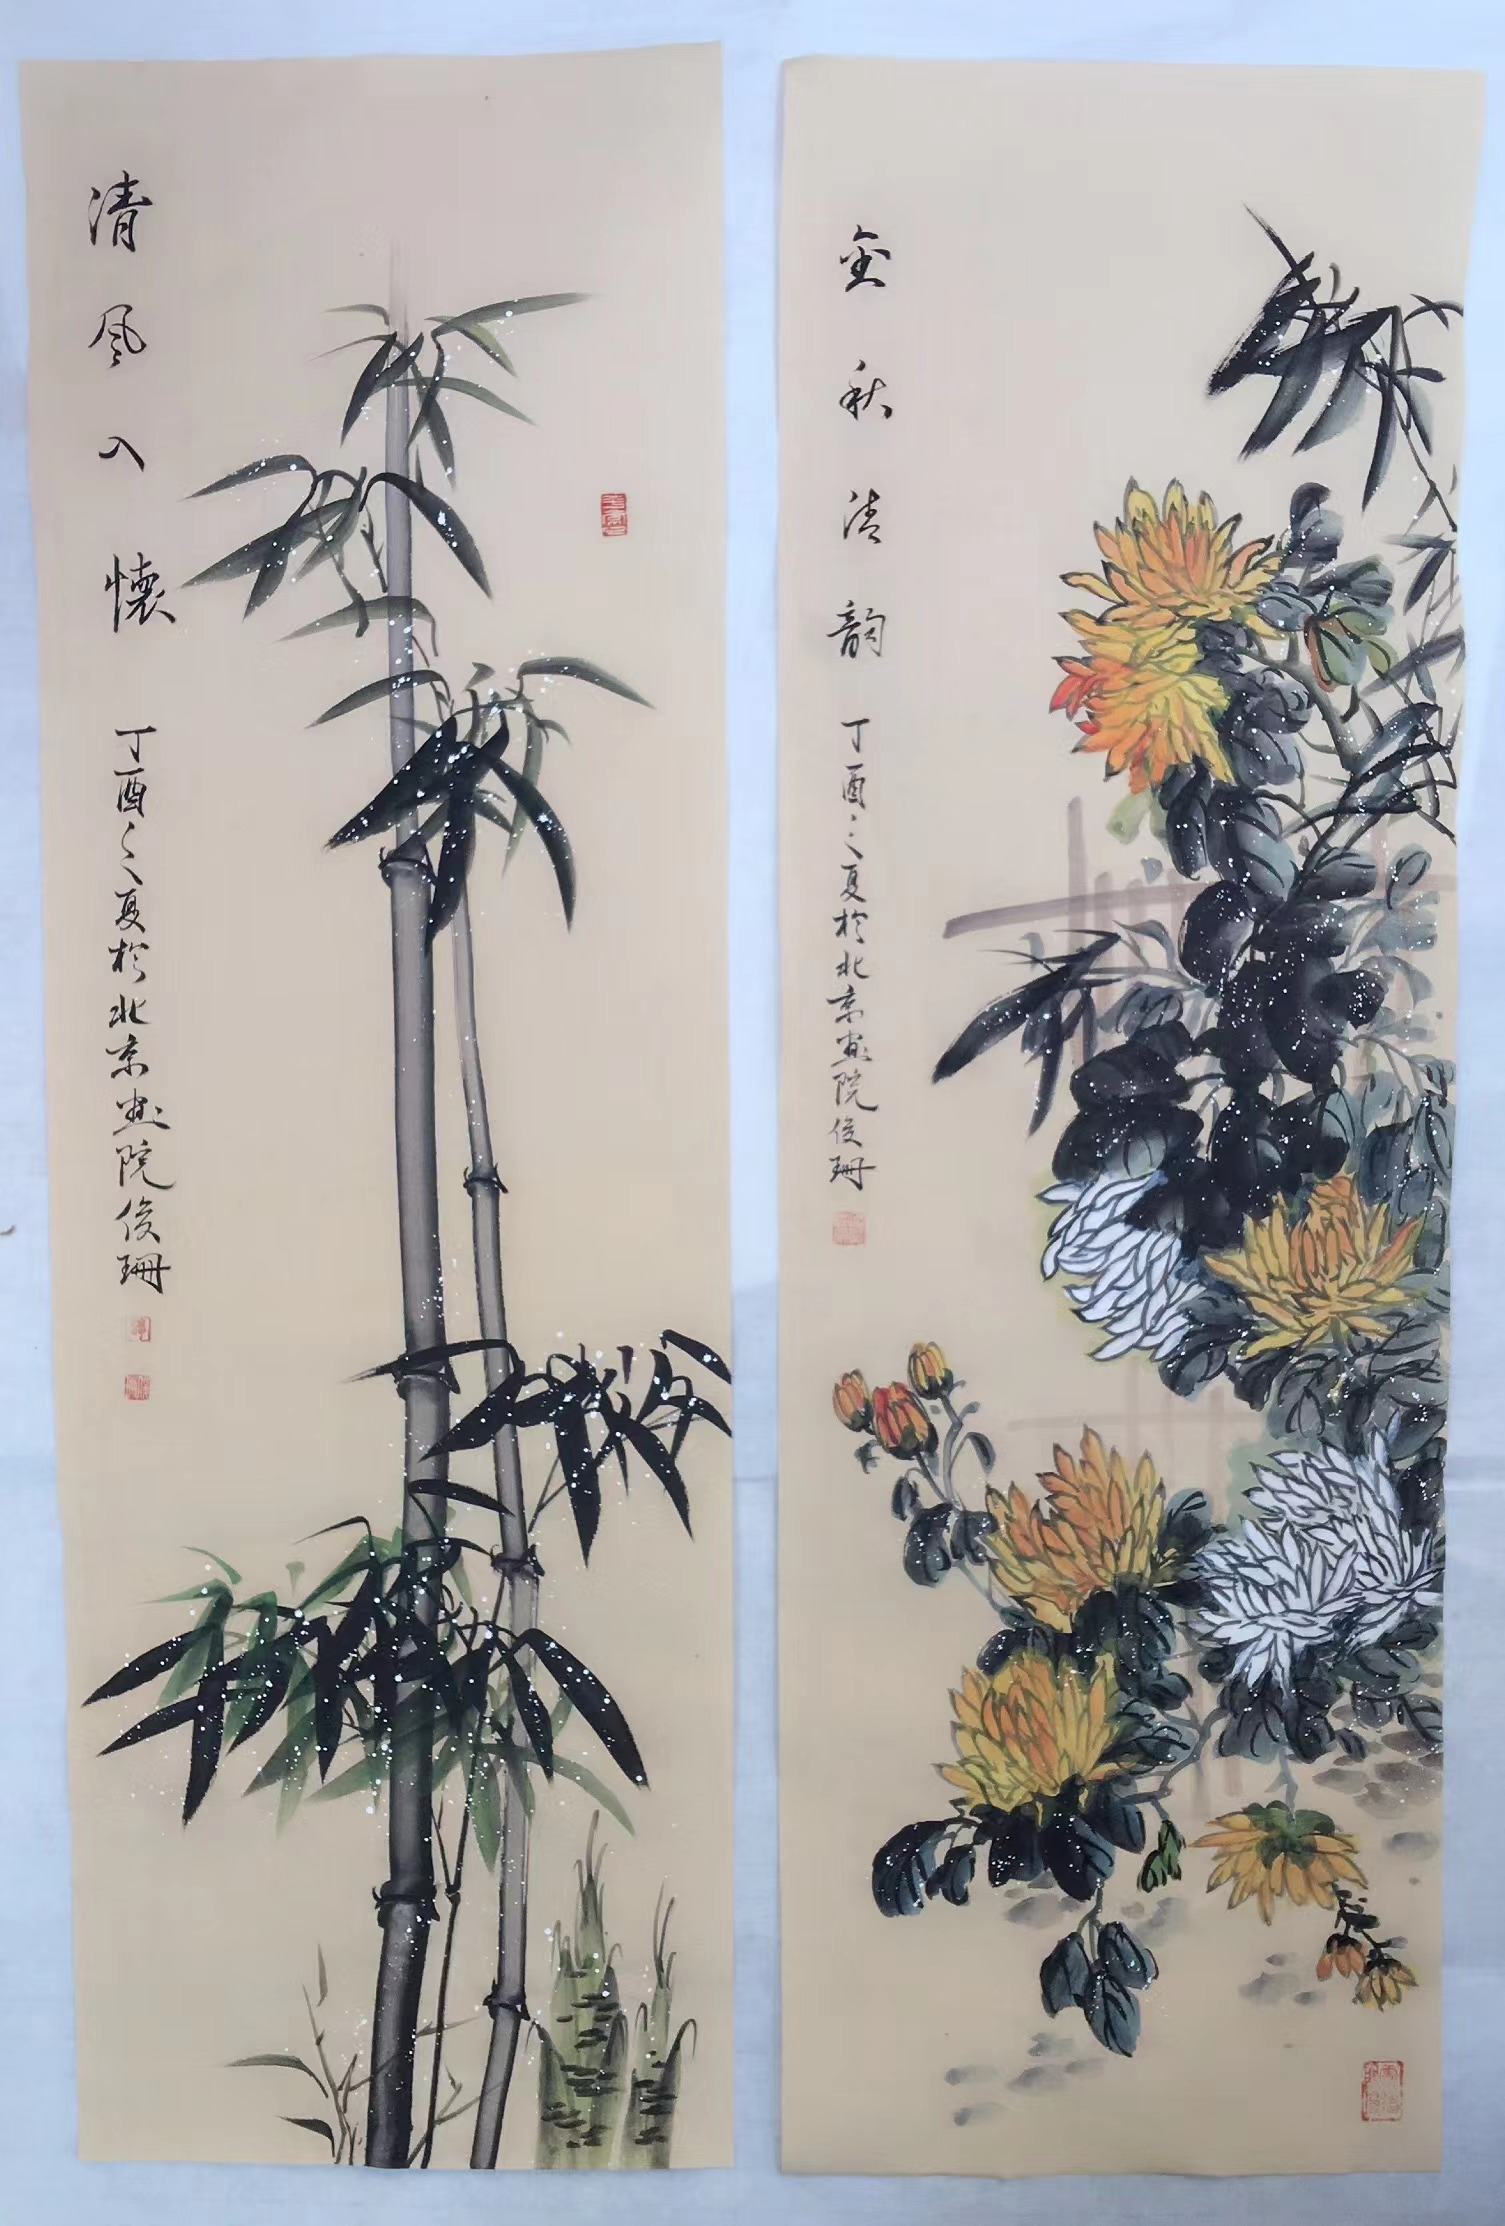 清风入懷
丁酉之夏於北京畫院俊珊
金秋清韵
丁酉之夏於北京畫院俊珊